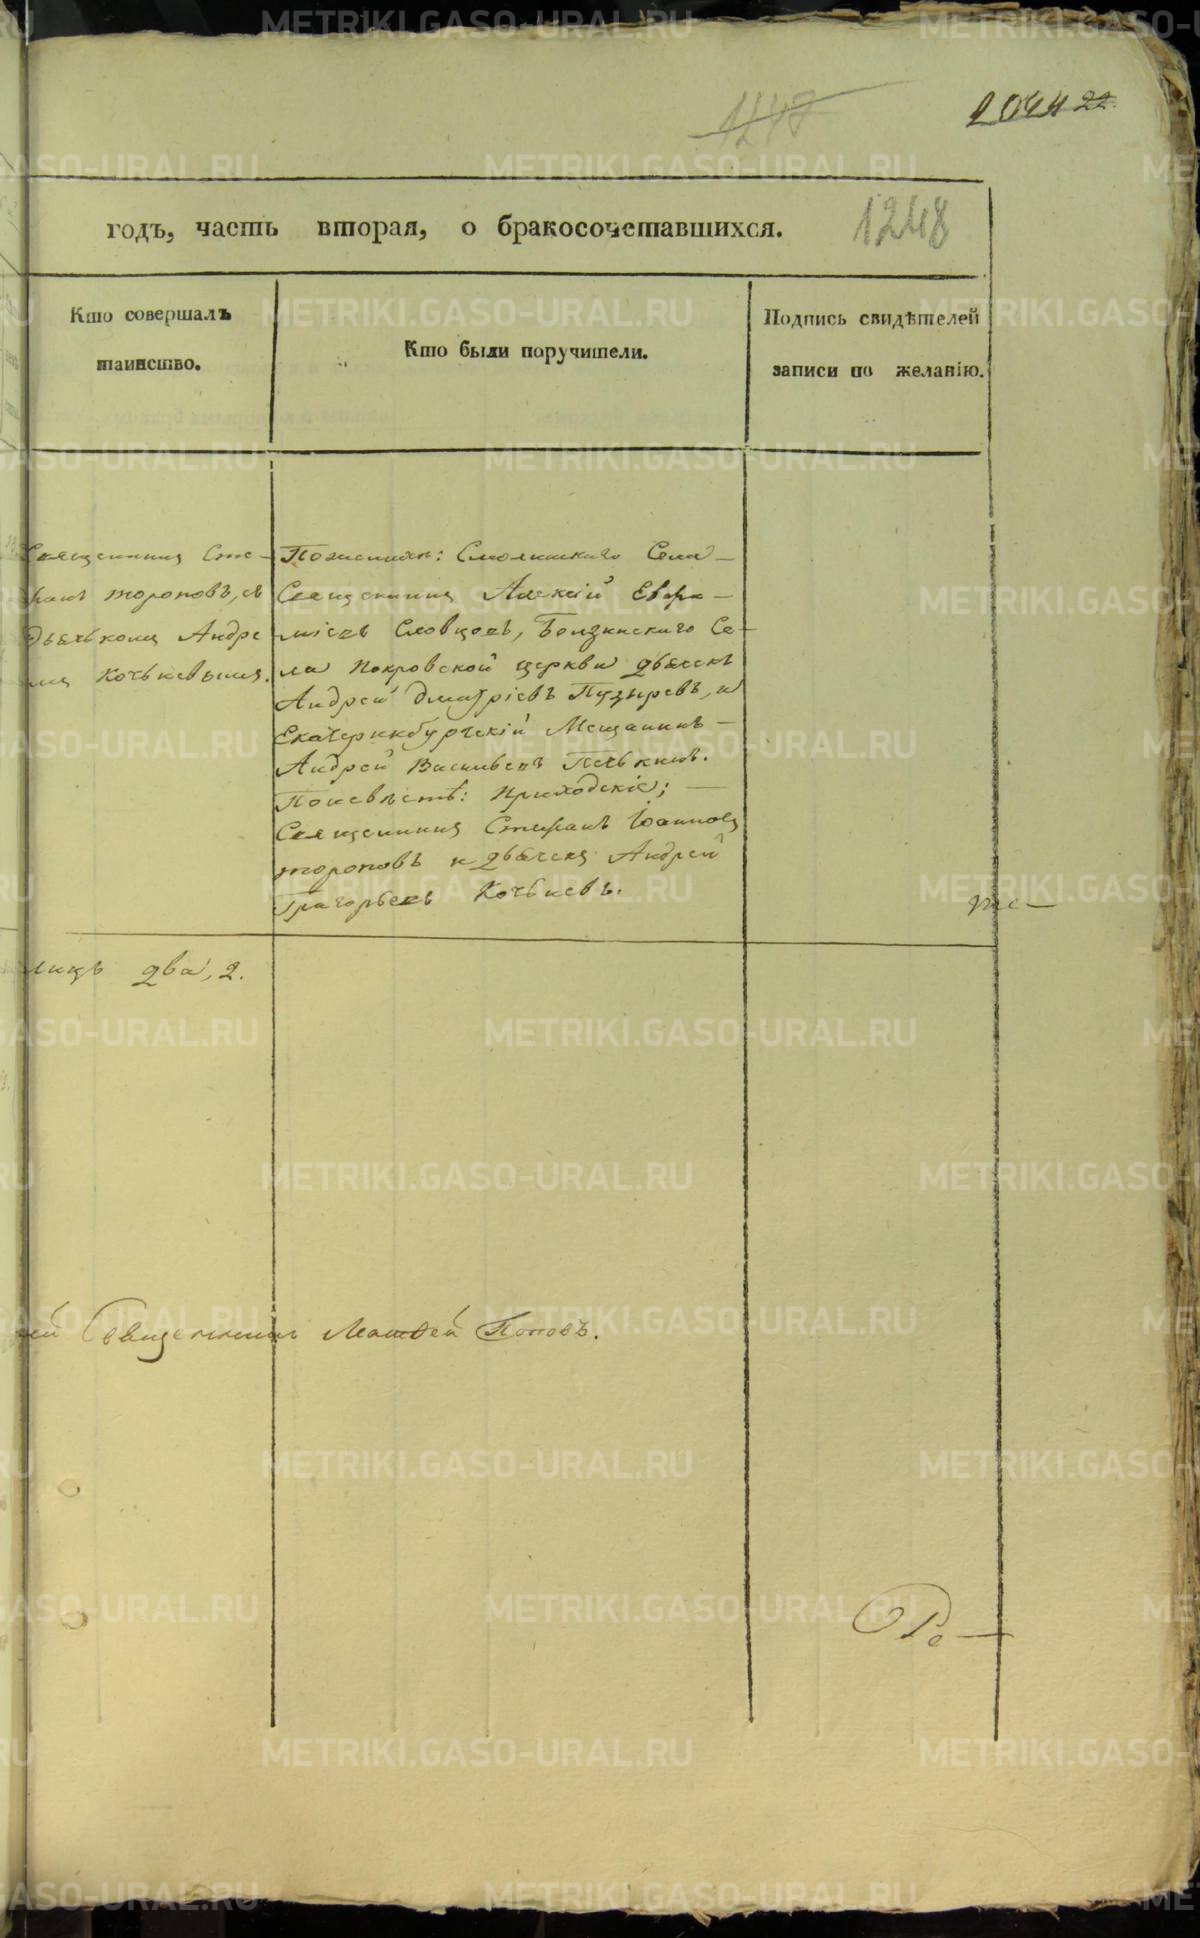 1247
1044 22.
годъ, часть вторая, о бракосочетавшихся. 1248
Кто совершалъ
таинство.
Кто были поручители.
Подпись свидѣтелей
записи по желанію.
Священникъ Сте-
фанъ Тороповъ, съ
Дьячкомъ Андре
емъ Кочневымъ.
По женихѣ: Смолинскаго Села
Священникъ Алексій Евфи-
міевъ Словцовъ, Села
Покровской церкви дьячекъ
Андрей Дмитріевъ Пузыревъ, и
Екатеринбургскій Мещанинъ
Андрей Васильевъ
По невѣстѣ: Приходскіе;
Священникъ Стефанъ Іоанновъ
Тороповъ и дьячекъ Андрей
Григорьевъ Кочневъ.
лицъ два, 2.
Священникъ Матѳей Поповъ.
METRIKI.GASO-URAL.RU